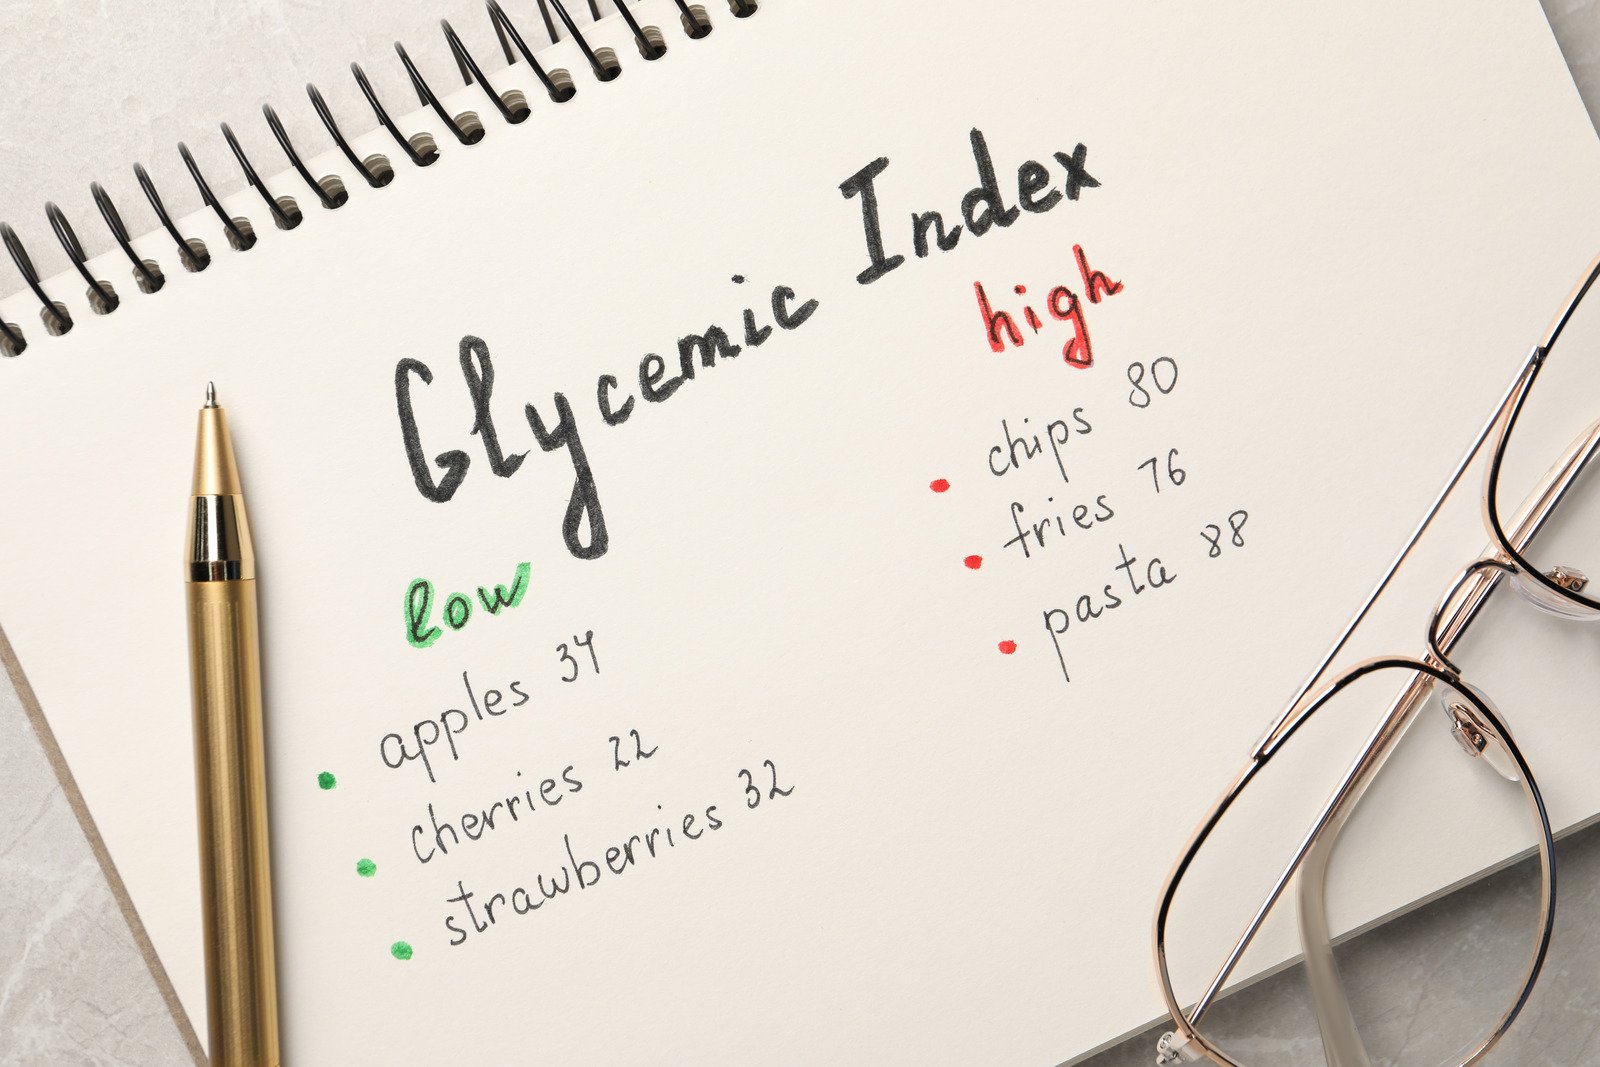 Glycemic Index
low
apples 34
cherries 22
strawberries 32
high
chips 80
fries 76
pasta 88